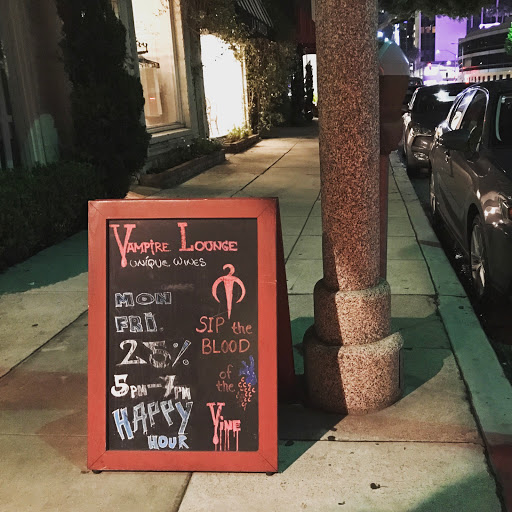 Vampire Lounge
Unique Wines
Mon
Fri.
25%
5pm-7pm
Happy
Hour
Sip the
Blood
of the
Vine